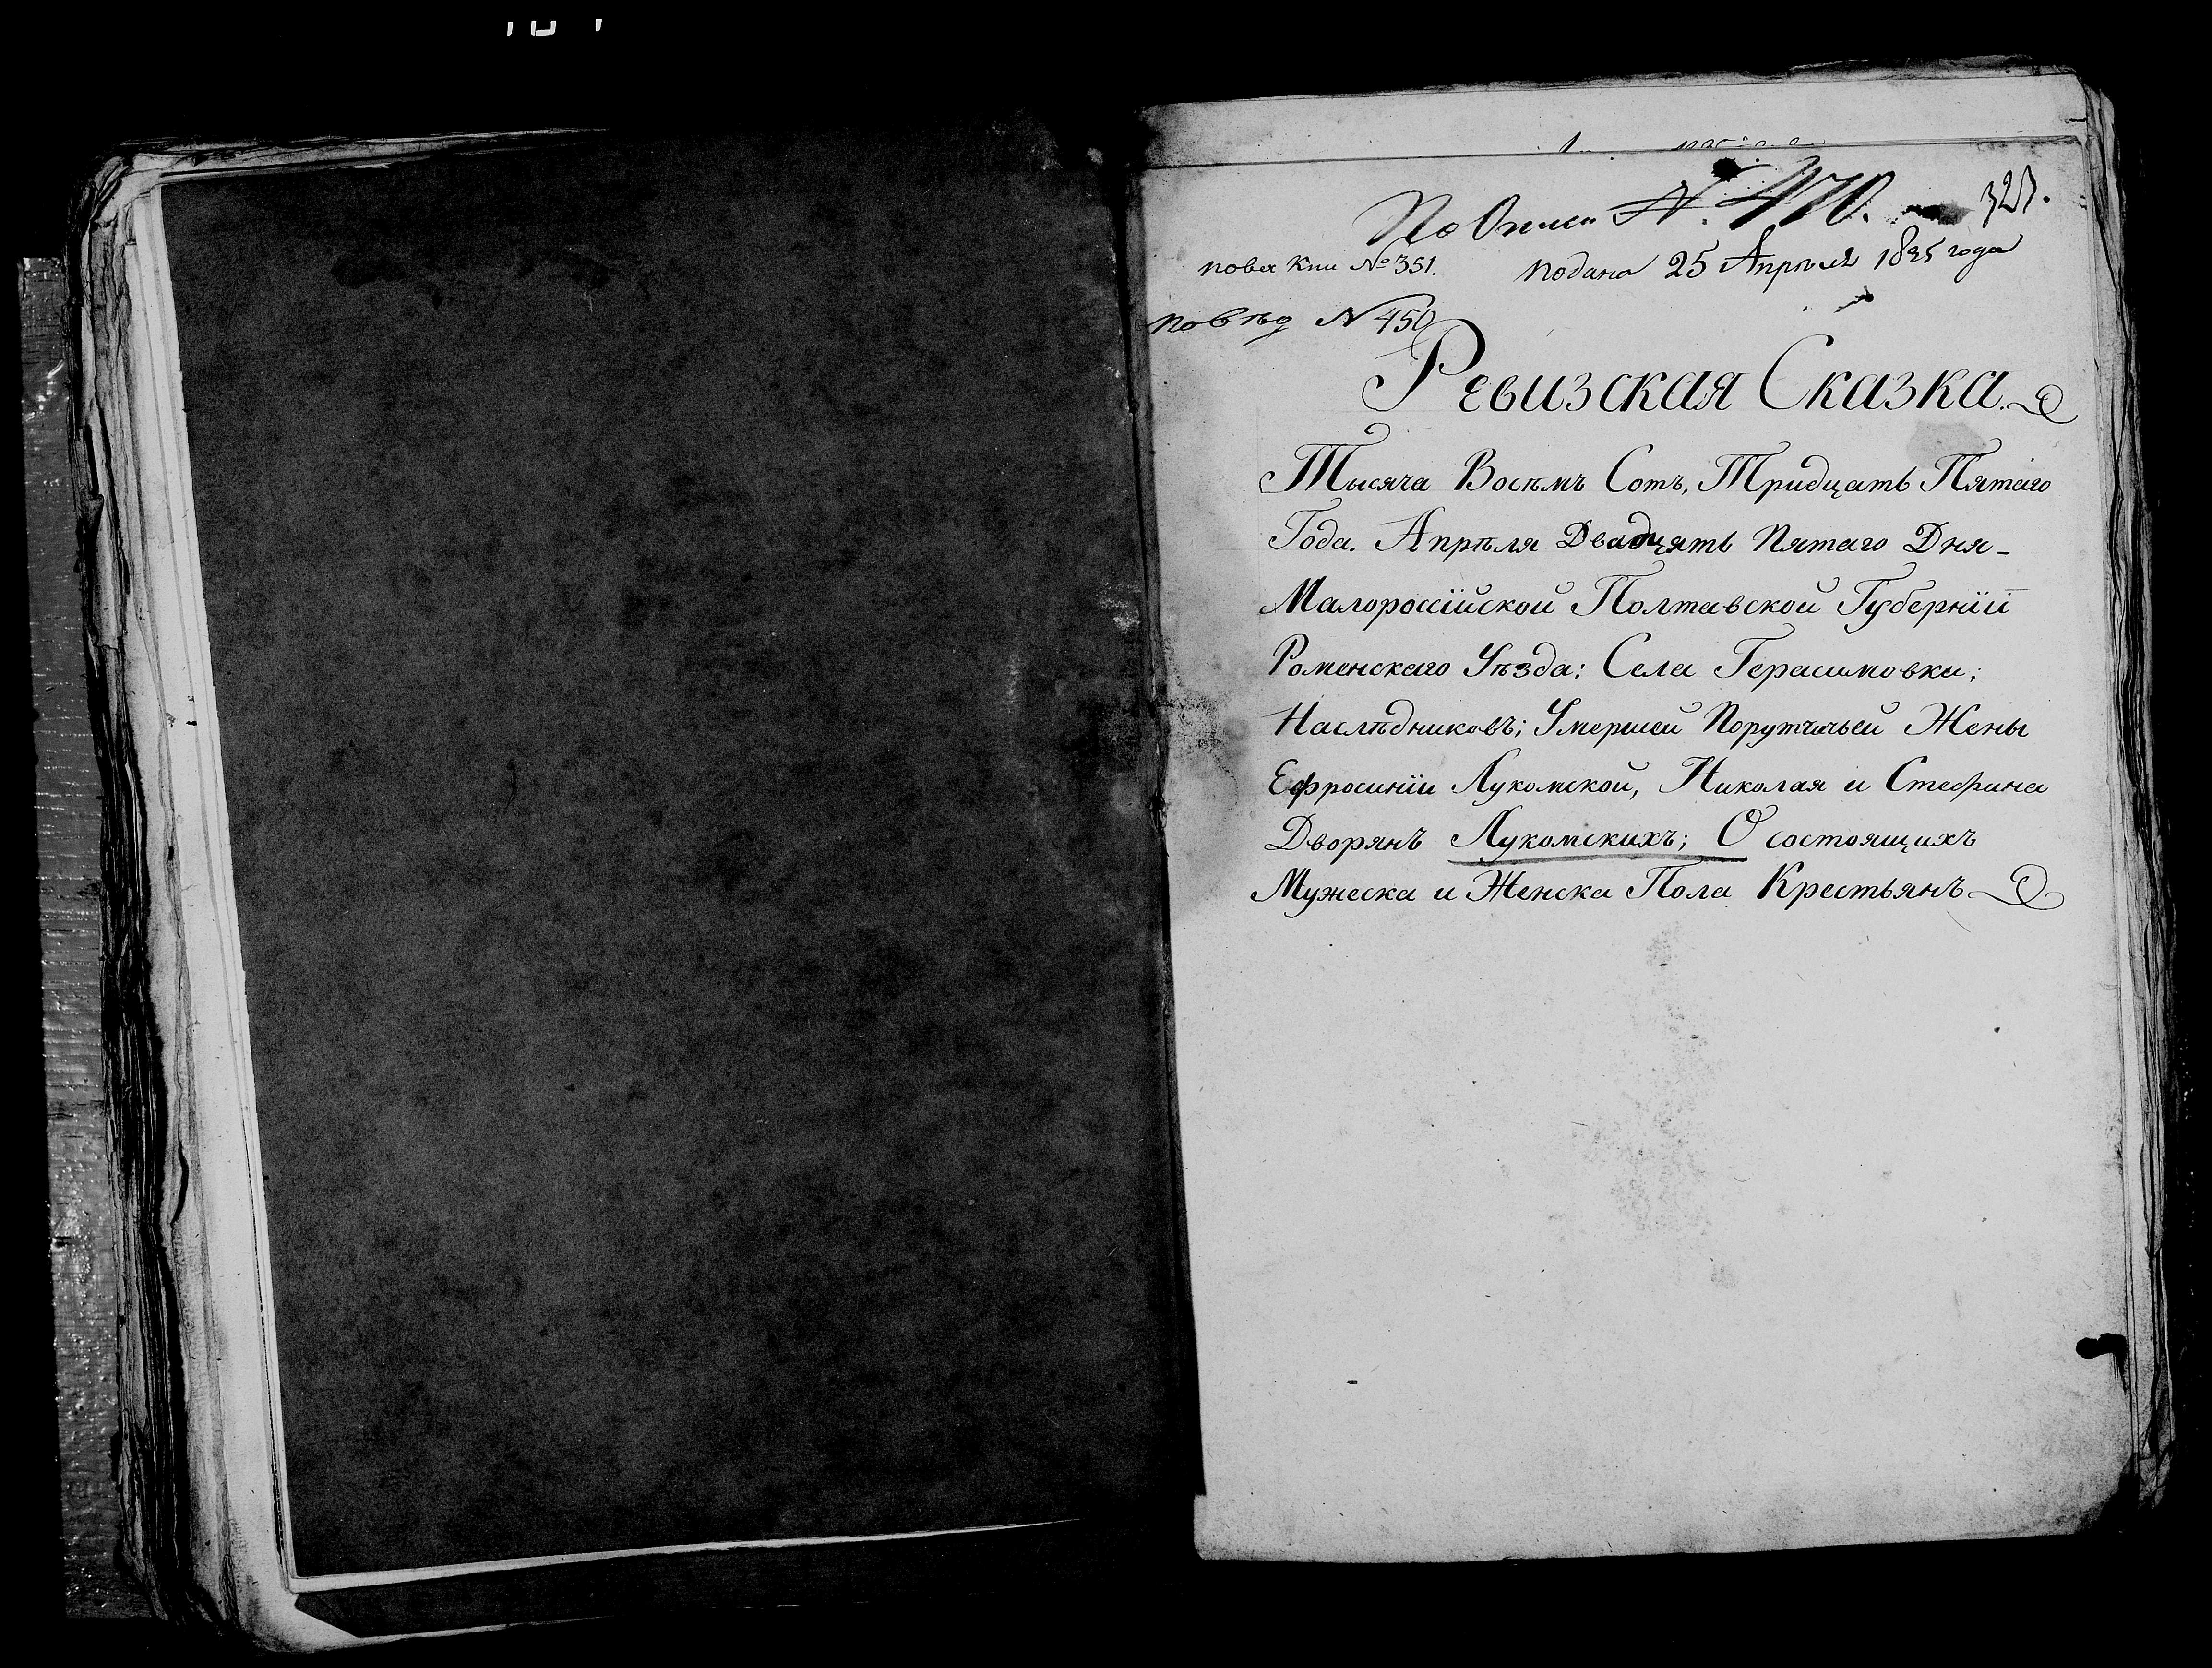 По Описи №. 470.
подана 25 Апреля 1835 года
№ 351.
По вѣд № 450
Ревизская Сказка.
Тысяча Восѣмъ Сотъ, Тридцать Пятаго
Года. Апрѣля Двадцять Пятаго Дня-
Малороссійской Полтавской Губерніи
Роменскаго Уѣзда: Села Герасимовки;
Наслѣдниковъ; Умершей Порутчичьей Жены
Ефросиніи Лукомской, Николая и Стефана
Дворянъ Лукомскихъ; О состоящихъ
Мужеска и Женска Пола Крестьянъ